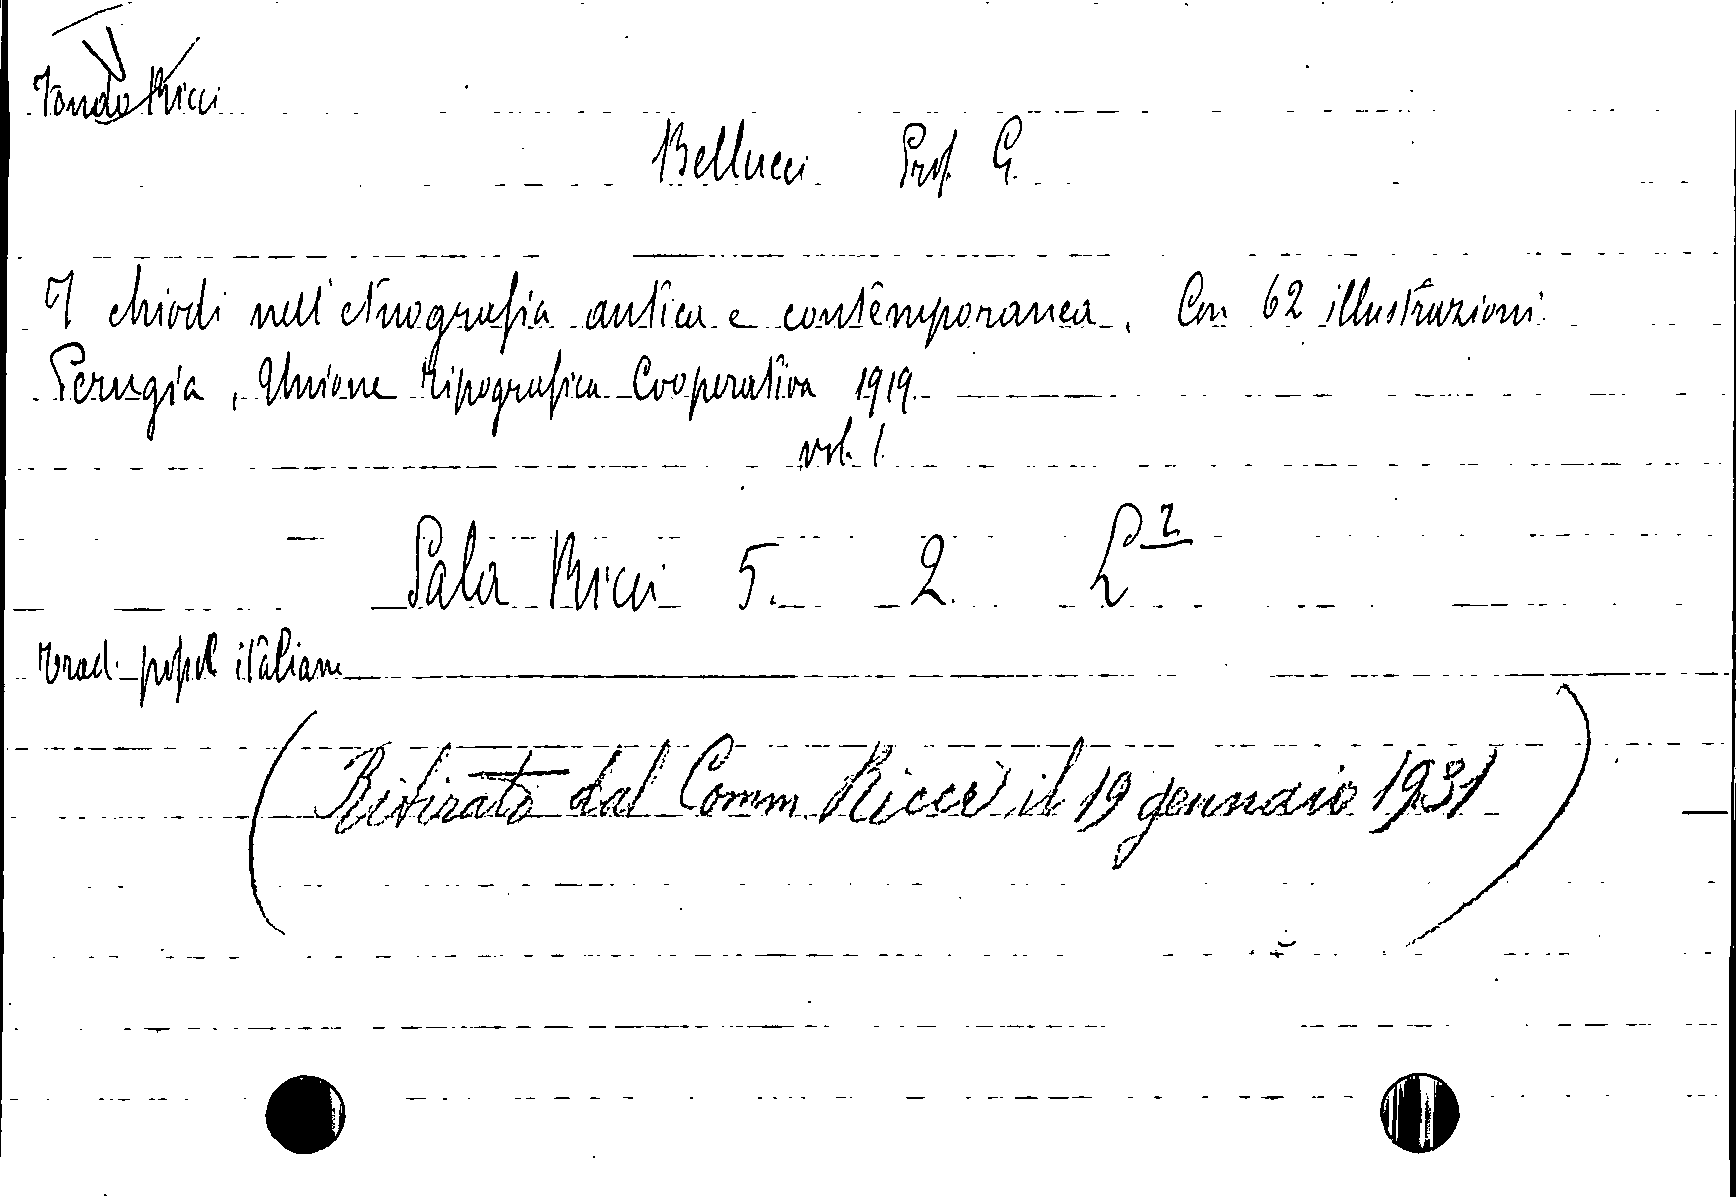 Fondo Ricci
Bellucci Prof. G.
I chiodi nell'etnografia antica e contemporanea. Con 62 illustrazioni
Perugia, Unione Tipografica Cooperativa 1919.
vol. 1.
Sala Ricci 5. 2. L²
Trad. popol italiane
(Ritirato dal Comm Ricci il 19 gennaio 1931)